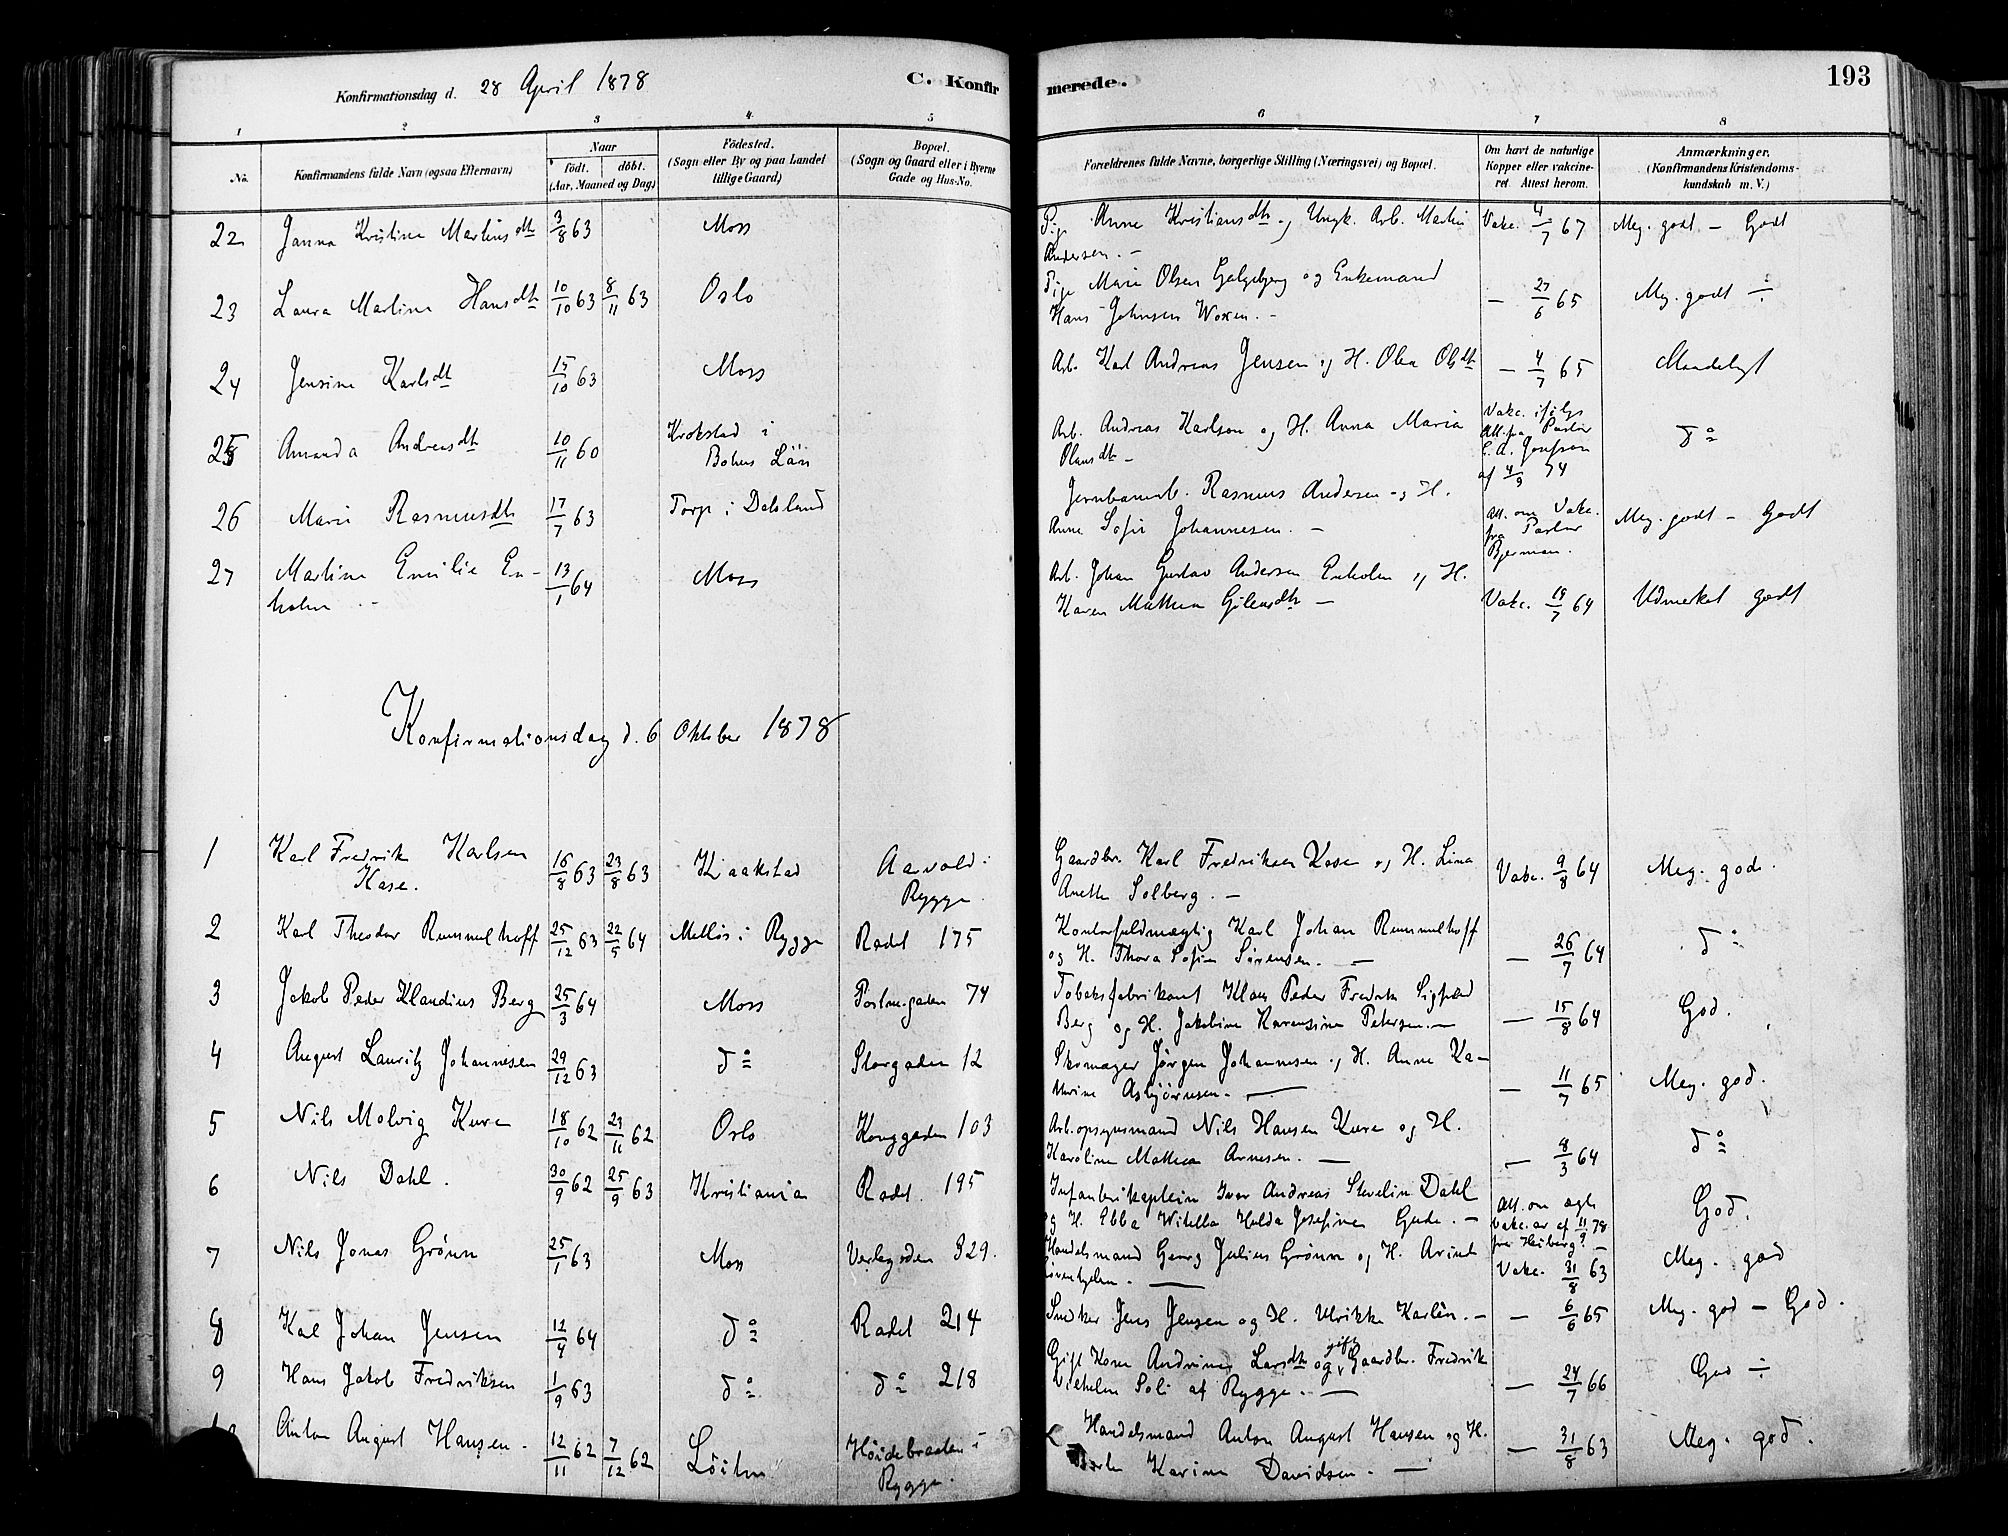 193
Konfirmationsdag d. 28 April 1878
C. Konfir
merede.
1 2 3 4 5 6 7 8
No.
Konfirmandens fulde Navn (ogsaa Efternavn)
Naar
födt. döbt.
(Aar, Maaned og Dag)
Födested.
(Sogn eller By og paa Landet
tillige Gaard)
Bopæl.
(Sogn og Gaard eller i Byerne
Gade og Hus-No.
Forældrenes fulde Navne, borgerlige Stilling (Næringsvei) og Bopæl.
Om havt de naturlige
Kopper eller vakcine-
ret Attest herom.
Anmærkninger.
(Konfirmandens Kristendoms-
kundskab m. V.)
22 Janna Kristine Martinsdtr 3/8 63 Moss Pige Anne Kristiansdtr og Ungk. Arb. Martin Vakc. 4/7 67 Meg. godt - Godt
Andersen. -
23 Laura Martine Hansdtr 10/10 63 8/11 63 Oslo Pige Marie Olsen Galgebjerg og Enkemand - 27/6 65 Meg. godt ÷
Hans Johnsen Woxen. -
24 Jensine Karlsdtr 15/10 63 Moss Arb. Karl Andreas Jensen og H. Olea Olsdtr - 4/7 65 Maadeligt
25 Amanda Andreasdtr 10/11 60 Krokstad i Arb. Andreas Karlson og H. Anna Maria Vakc. ifölge do
Bohus Län Olausdtr - Att. fra Pastor
af 4/9 74
26 Marie Rasmusdtr 17/7 63 Torp i Dalsland Jernbanearb. Rasmus Andersen og H. Att. om Vakc. Meg. godt - Godt
Anne Sofie Johannesen. - fra Pastor
Bjerman.
27 Martine Emilie En- 13/1 64 Moss Arb. Johan Gustav Andersen Enholm og H.
holm. - Karen Mathea Gilensdtr - Vakc. 19/7 64 Udmerket godt
Konfirmationsdag d. 6 Oktober 1878
1 Karl Fredrik Karlsen 16/8 63 23/8 63 Kraakstad Aarvold i Gaardbr. Karl Fredriksen Kase og H. Lina Vakc. 9/8 64 Meg. god.
Kase. Rygge. Anette Solberg. -
2 Karl Theodor Rummelhoff 25/12 63 22/5 64 Melløs i Rygge Radet 175 Kontorfuldmægtig Karl Johan Rummelhoff do
og H. Thora Sofie Sørensen. - - 26/7 64
3 Jakob Peder Klaudius Berg 25/3 64 Moss 74 Tobaksfabrikant Klaus Peder Fredrik Sigfred - 15/8 64 God.
Berg og H. Jakobine Karensine Petersen. -
4 August Lauritz Johannesen 29/12 63 do Storgaden 12 Skomager Jørgen Johannesen og H. Anne Ka-
thrine Asbjørnsen. - - 11/7 65 Meg. god.
5 Nils Molvig Kure 18/10 62 23/11 62 Oslo Konggaden 103 Arb.opsynsmand Nils Hansen Kure og H. do
Karoline Mathea Arnesen. - - 8/3 64
6 Nils Dahl. 30/9 62 25/9 63 Kristiania Radet. 195 Infanterikaptein Iver Andreas Stevelin Dahl Att. om ægte God.
og H. Ebba Witella Hulda Josefine Gude. - vakc. ar af 11/9 78
fra Heiberg. -
7 Nils Jonas Grønn 25/1 63 Moss Verlegaden 329. Handelsmand Georg Julius Grønn og H. Meg. god
Vakc. 31/8 63
8 Karl Johan Jensen 12/4 64 do Radet 214 Snedker Jens Jensen og H. Ulrikke Karlên. - - 6/6 65 Meg. god - God.
9 Hans Jakob Fredriksen 1/9 63 do do 218 Gift Kone Andrine Larsdtr og gift Gaardbr. Fredrik - 24/7 66 God ÷
Vilhelm Soli af Rygge. -
Anton August Hansen. 12/11 62 7/12 62 Löiten Höidebraaten i Handelsmand Anton August Hansen og H. - 31/8 63 Meg. god.
Rygge. Karine Davidsen. -